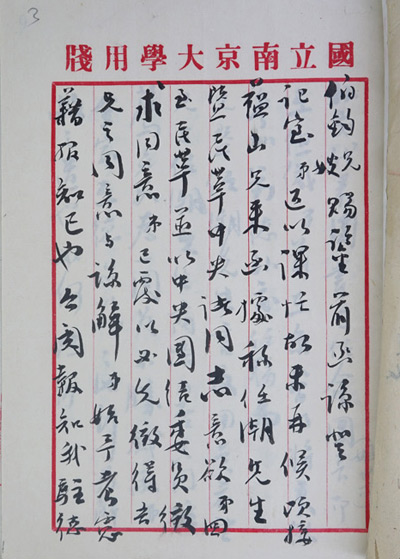 3
國立南京大學用牋
伯鈞兄嫂賜鑒前函諒登
記室弟近以課忙故未再候頃接
蘊山兄來函據稱任潮先生
暨民革中央諸同志意欲弟回
至民革並以中央團結委員徵
求同意弟已覆以必先徵得吾
兄之同意與諒解弟始可考慮
藉報知己也今閱報知我駐德